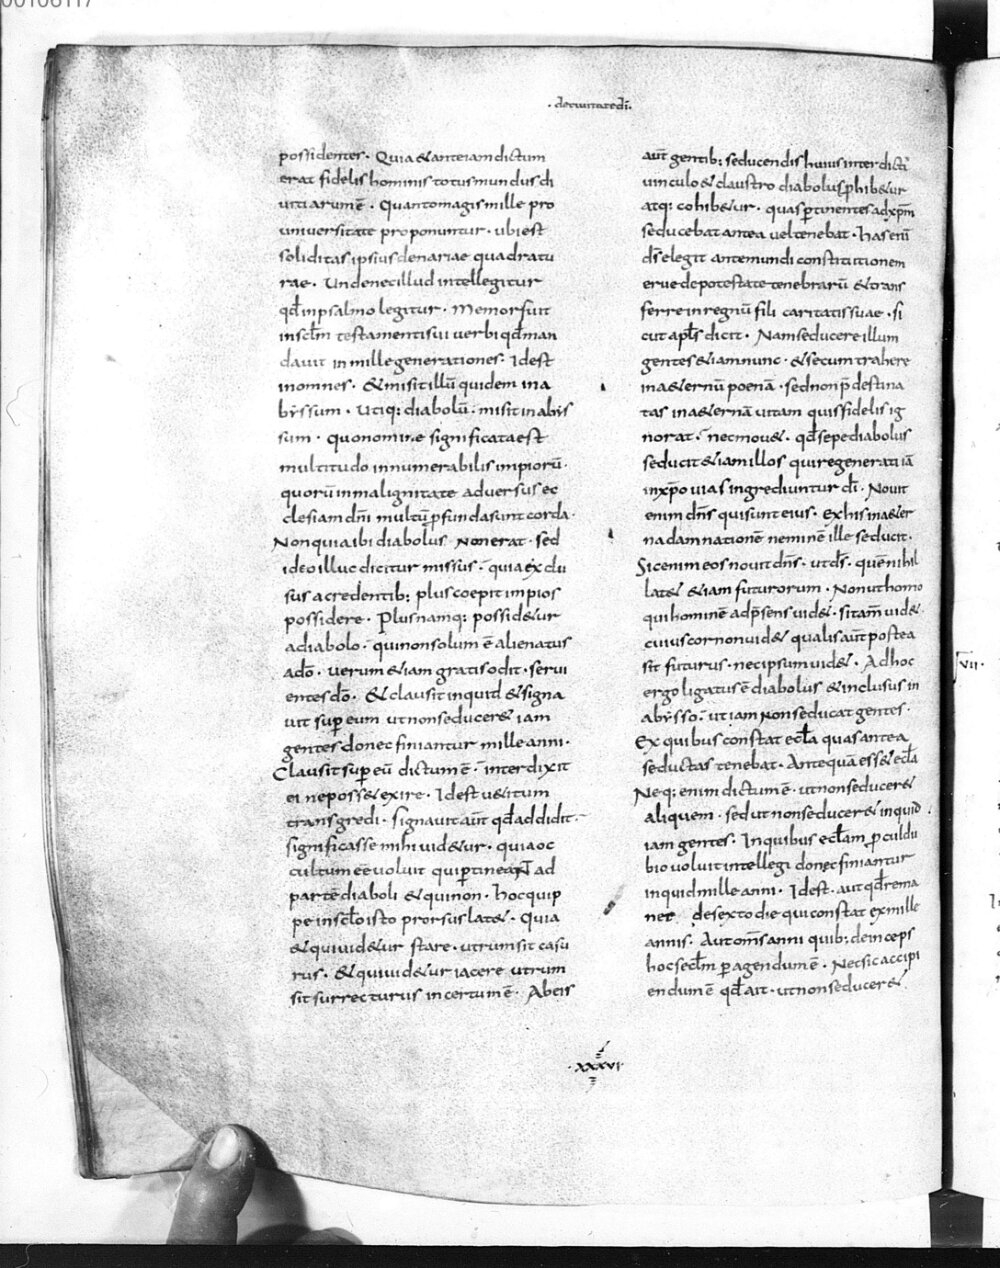 00106117
· deciuitatedī ·
possidentes · Quia & anteiam dictum
erat fidelis hominis totus mundus di
uitiarum ē · Quanto magis mille pro
uniuersitate proponuntur · ubi est
soliditas ipsius denariae quadratu
rae · Unde nec illud intellegitur
qd̄ in psalmo legitur · Memor fuit
in sc̄lm testamenti sui uerbi qd̄ man
dauit in mille generationes · Idest
in omnes · & misit illū quidem in a
byssum · Utiq; diabolū · misit in abys
sum · quo nomine significata est
multitudo innumerabilis impiorū ·
quorū in malignitate aduersus ec
clesiam dn̄i multū ꝓfunda sunt corda ·
Non quia ibi diabolus non erat · sed
ideo illuc dicitur missus · quia exclu
sus a credentib; plus coepit impios
possidere · Plus namq; possid&ur
a diabolo · qui non solum ē alienatus
a dō · uerum &iam gratis odit · serui
entes dō · & clausit inquid & signa
uit suꝑ eum ut non seducer& iam
gentes donec finiantur mille anni ·
Clausit suꝑ eū dictum ē · interdixit
ei ne poss& exire · Idest u&itum
transgredi · signauit aūt qd̄ addidit ·
significasse mihi uid&ur · quia oc
cultum eē uoluit qui ꝑtineant ad
partē diaboli & qui non · hoc quip
pe in sc̄lo isto prorsus lat& · Quia
& qui uid&ur stare · utrum sit casu
rus · & qui uid&ur iacere utrum
sit surrecturus incertum ē · Ab eis
aūt gentib; seducendis huius interdicti
uinculo & claustro diabolus ꝓhib&ur
atq; cohib&ur · quas ꝑtinentes ad xp̄m
seducebat antea uel tenebat · has enī
dī elegit ante mundi constitutionem
eruere de potestate tenebrarū & trans
ferre in regnū filī caritatis suae · si
cut apl̄s dicit · Nam seducere illum
gentes &iam nunc · & secum trahere
in a&ernū poenā · sed non p̄destina
tas in a&ernā uitam quis fidelis ig
norat · nec mou& · qd̄ sepe diabolus
seducit &iam illos qui regenerati iā
in xp̄o uias ingrediuntur dī · Nouit
enim dn̄s qui sunt eius · Ex his in a&er
nā damnationē neminē ille seducit ·
Sic enim eos nouit dn̄s · ut ds̄ · quē nihil
lat& &iam futurorum · Non ut homo
qui hominē ad p̄sens uid& · si tam̄ uid& ·
cuius cor non uid& qualis aūt postea
sit futurus · nec ipsum uid& · Ad hoc
ergo ligatus ē diabolus & inclusus in
abysso · ut iam non seducat gentes ·
Ex quibus constat eccl̄a quas antea
seductas tenebat · Antequā ess& eccl̄a
Neq; enim dictum ē · ut non seducer&
aliquem · sed ut non seducer& inquid
iam gentes · In quibus eccl̄am ꝓculdu
bio uoluit intellegi donec finiantur
inquid mille anni · Idest · aut qd̄ rema
net de sexto die qui constat ex mille
annis · Aut om̄s anni quib; deinceps
hoc sc̄lm ꝑagendum ē · Nec sic accipi
endum ē qd̄ ait · ut non seducer&
VII ·
· XXXVI ·